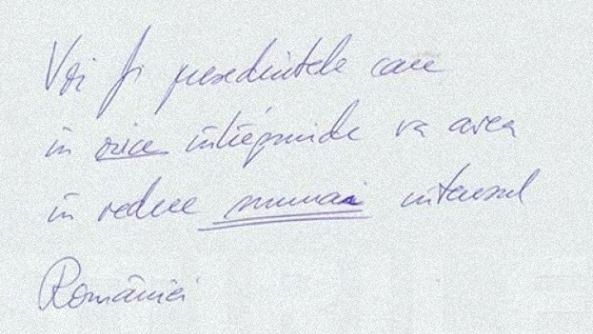 Voi fi presedintele care
în orice întreprinde va avea
în vedere numai interesul
României